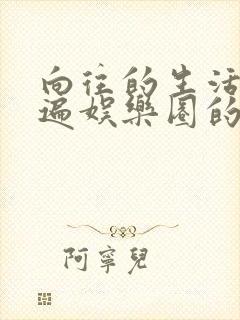 向往的生活
遍娱樂圈的
阿寧兒